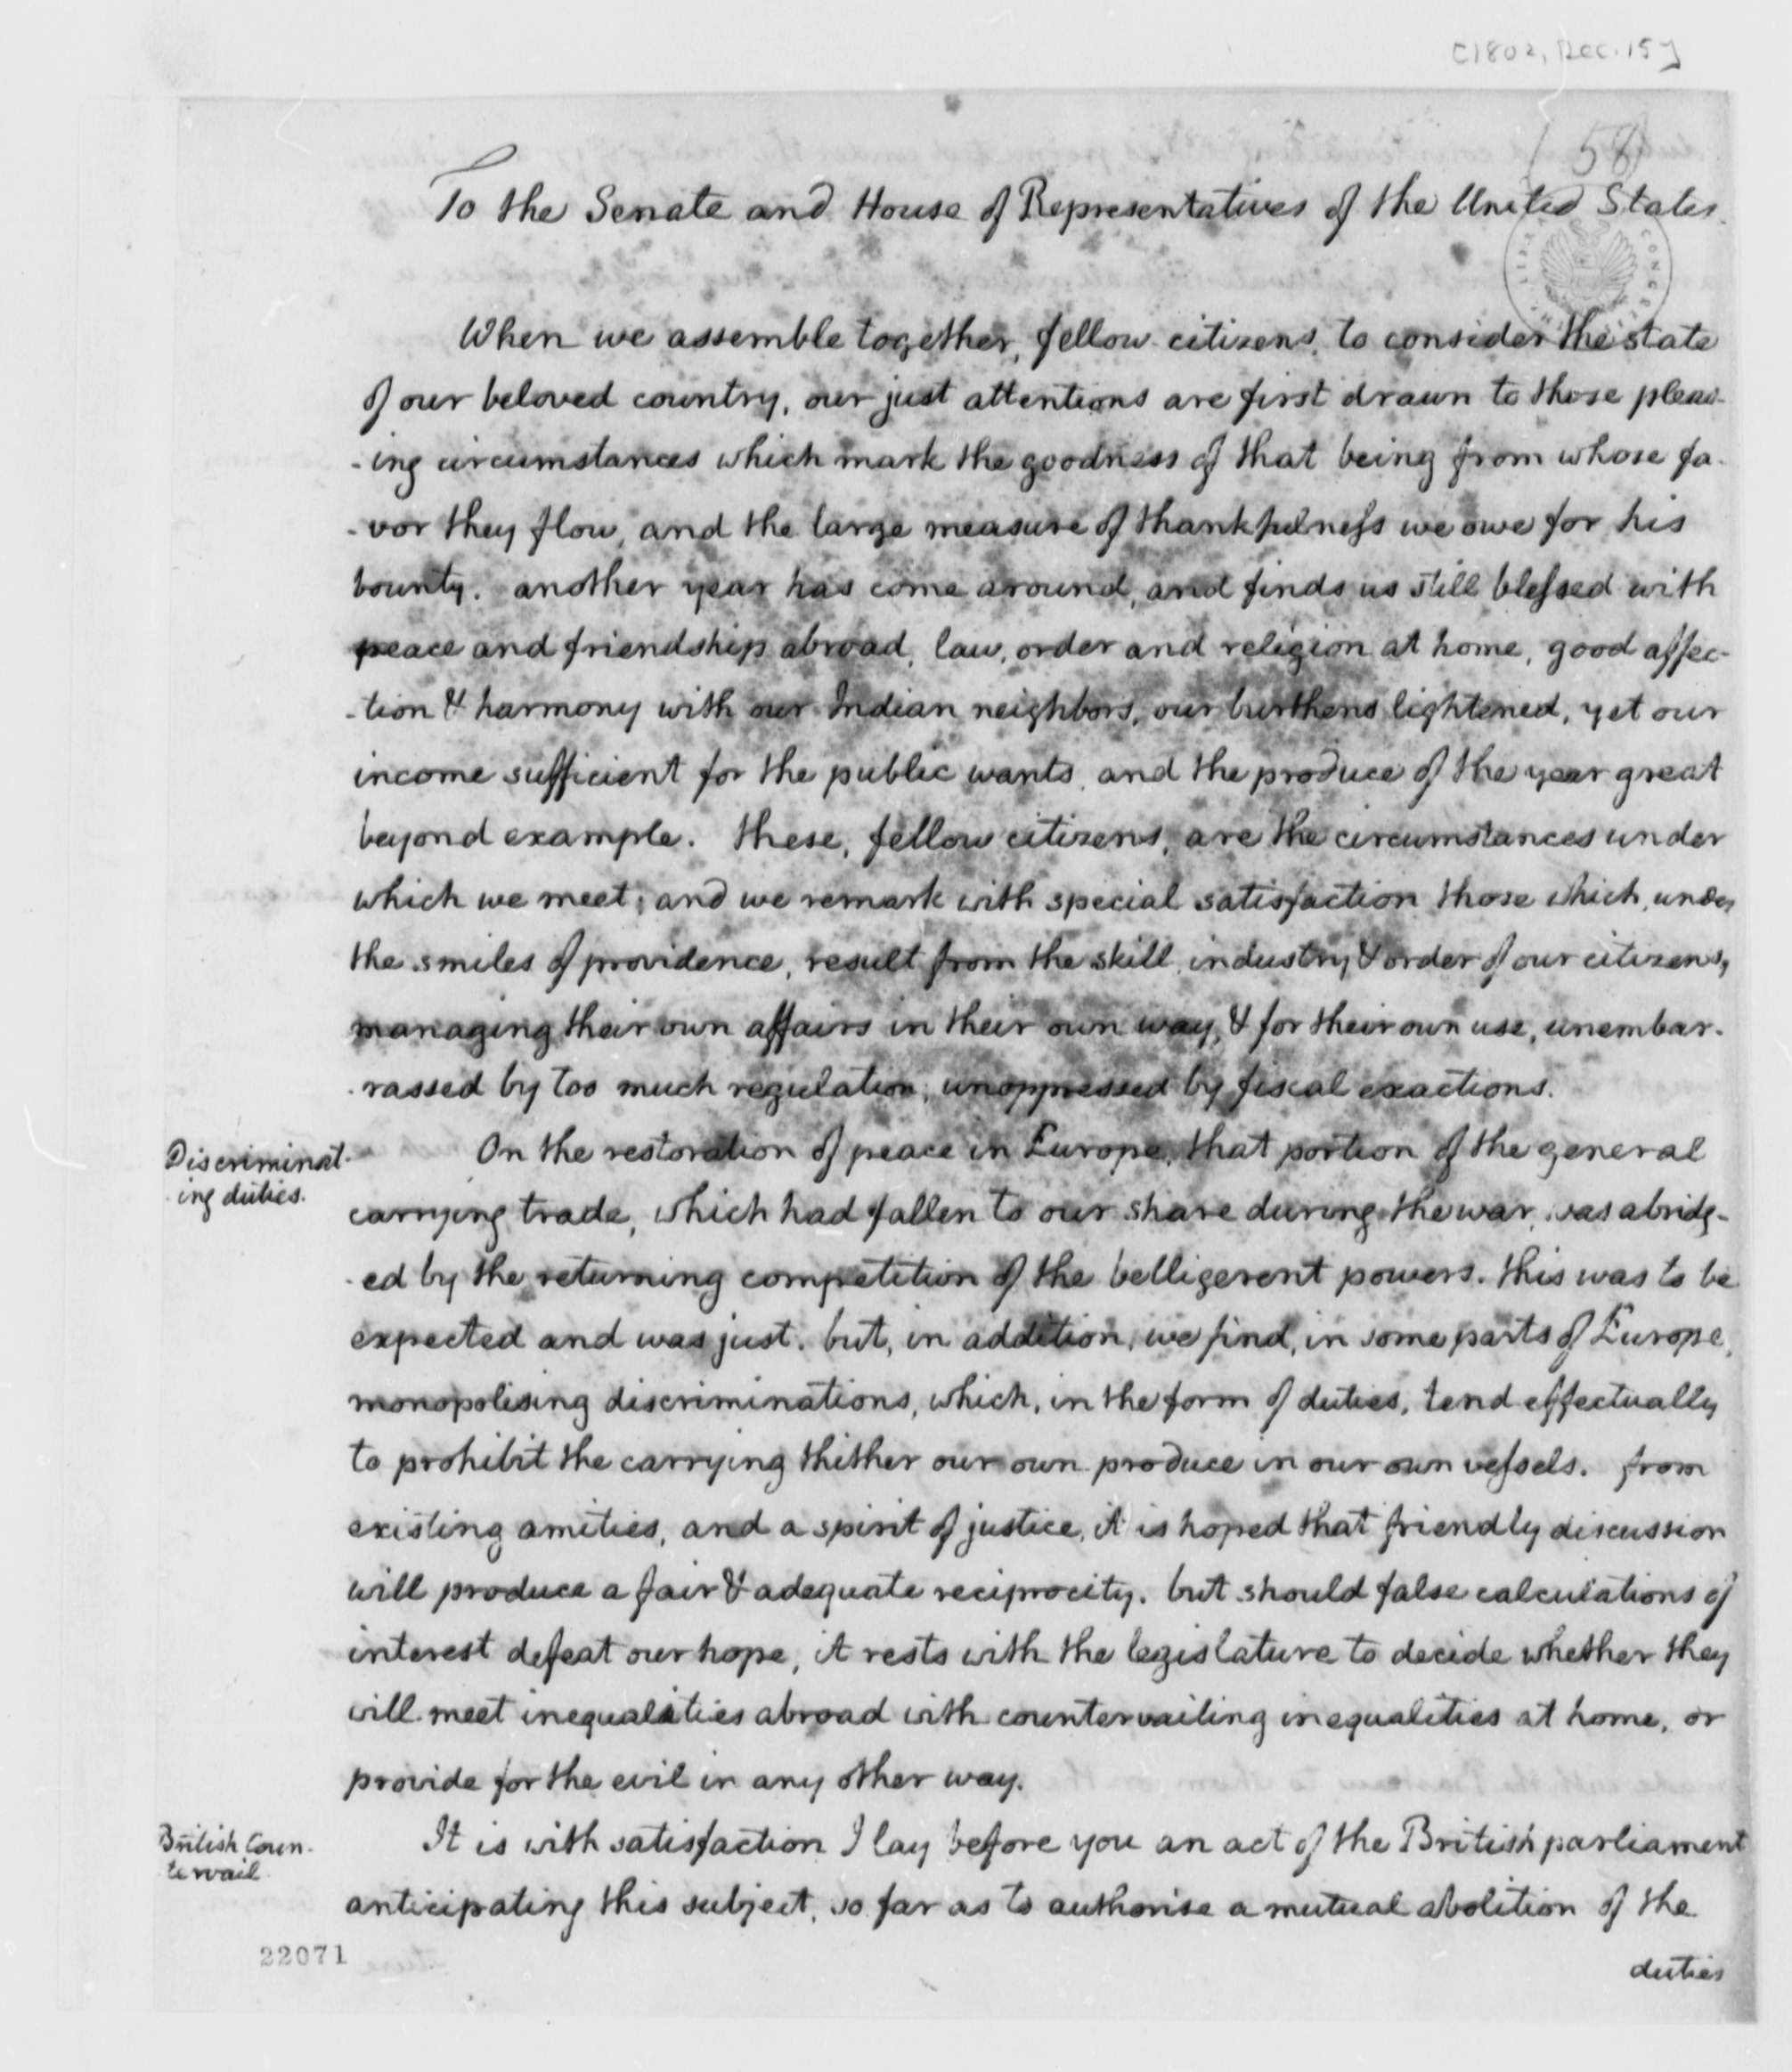 [1802, Dec. 15]
58
To the Senate and House of Representatives of the United States.
When we assemble together, fellow citizens, to consider the state
of our beloved country, our just attentions are first drawn to those pleas-
-ing circumstances which mark the goodness of that being from whose fa-
-vor they flow, and the large measure of thankfulness we owe for his
bounty. another year has come around, and finds us still blessed with
peace and friendship abroad, law, order and religion at home, good affec-
-tion & harmony with our Indian neighbors, our burthens lightened, yet our
income sufficient for the public wants, and the produce of the year great
beyond example. these, fellow citizens, are the circumstances under
which we meet; and we remark with special satisfaction those which, under
the smiles of providence, result from the skill, industry & order of our citizens,
managing their own affairs in their own way, & for their own use, unembar-
-rassed by too much regulation, unoppressed by fiscal exactions.
Discriminat-
ing duties.
On the restoration of peace in Europe, that portion of the general
carrying trade, which had fallen to our share during the war, was abridg-
-ed by the returning competition of the belligerent powers. this was to be
expected and was just. but, in addition, we find, in some parts of Europe,
monopolising discriminations, which, in the form of duties, tend effectually
to prohibit the carrying thither our own produce in our own vessels. from
existing amities, and a spirit of justice, it is hoped that friendly discussion
will produce a fair & adequate reciprocity. but should false calculations of
interest defeat our hope, it rests with the legislature to decide whether they
will meet inequalities abroad with countervailing inequalities at home, or
provide for the evil in any other way.
British Coun-
tervail
It is with satisfaction I lay before you an act of the British parliament
anticipating this subject, so far as to authorise a mutual abolition of the
duties
22071